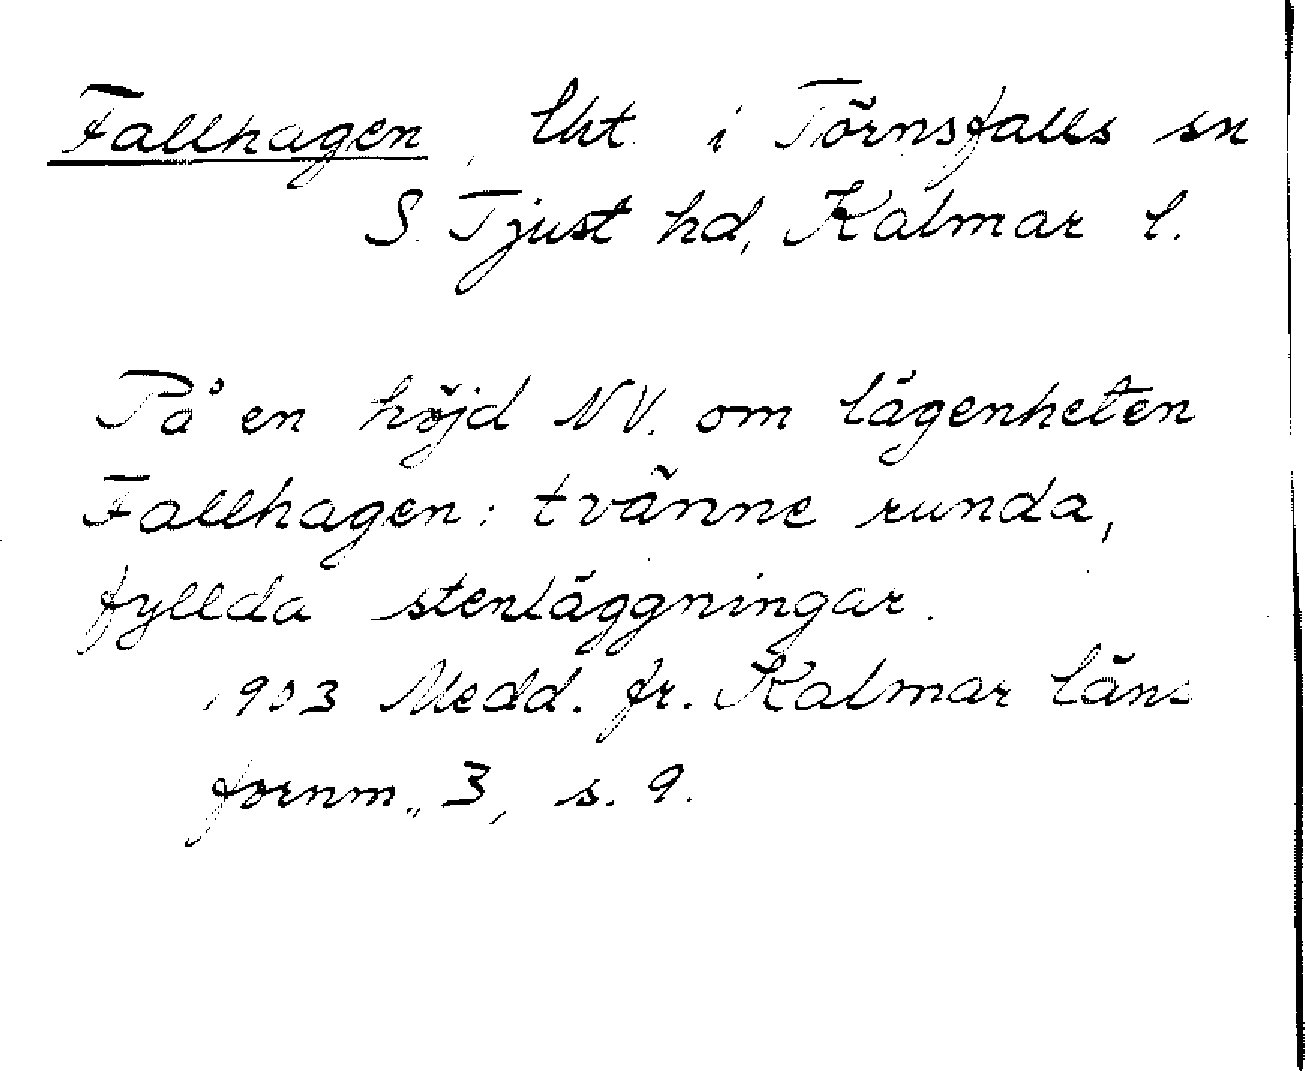 Fallhagen, lht. i Törnsfalls sn
S. Tjust hd, Kalmar l.
På en höjd NV. om lägenheten
Fallhagen: tvänne runda,
fyllda stenläggningar.
1903 Medd. fr. Kalmar läns
fornm., 3, s. 9.